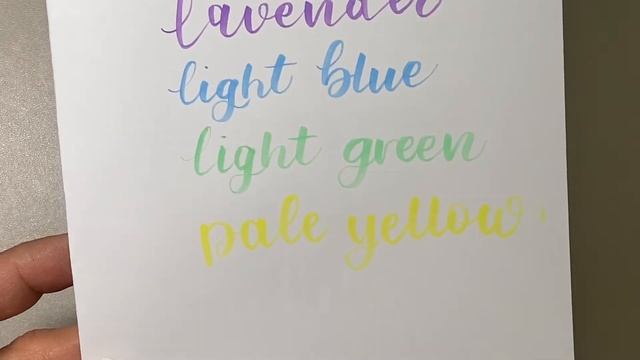 lavender
light blue
light green
pale yellow